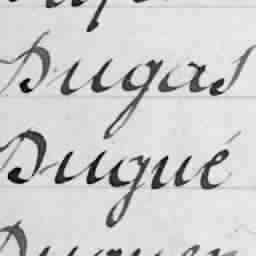 Dugas
Dugué